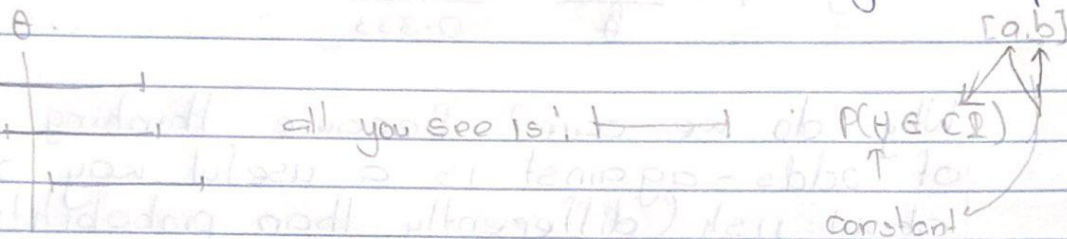 θ [a,b]
all you see is: P(θ ∈ CI)
constant